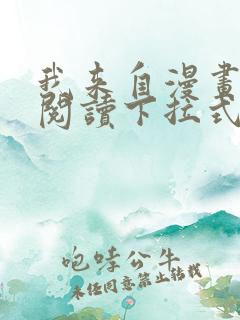 我来自漫畫
閱讀下拉式
咆哮公牛
未经同意禁止转载